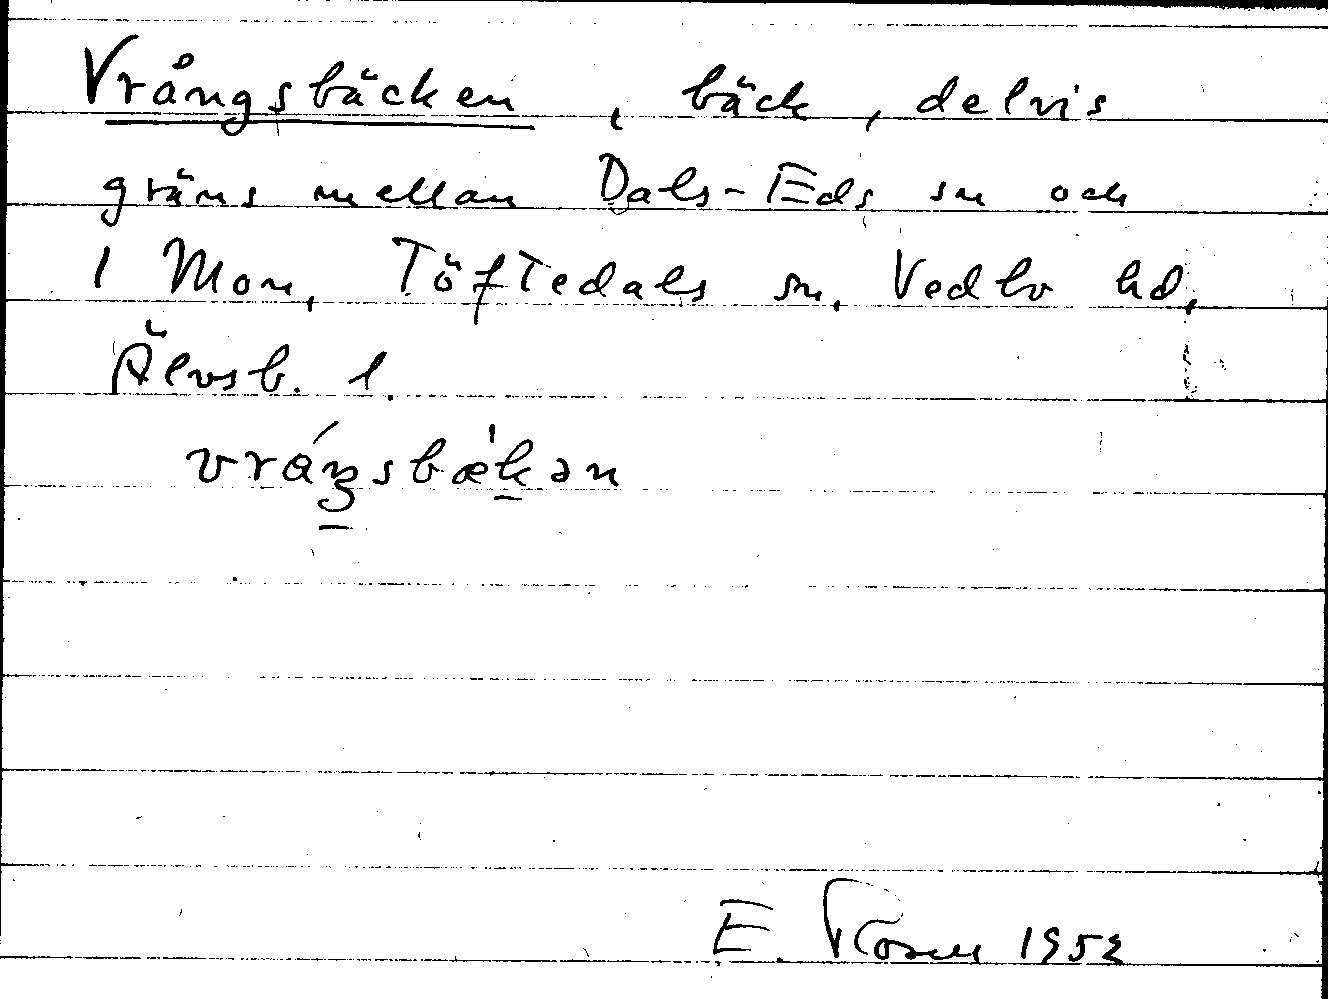 Vrångsbäcken, bäck, delvis
gräns mellan Dals-Eds sn och
1 Mon, Töftedals sn, Vedbo hd,
Älvsb. l.
vráŋsbækən
E. Rosell 1952